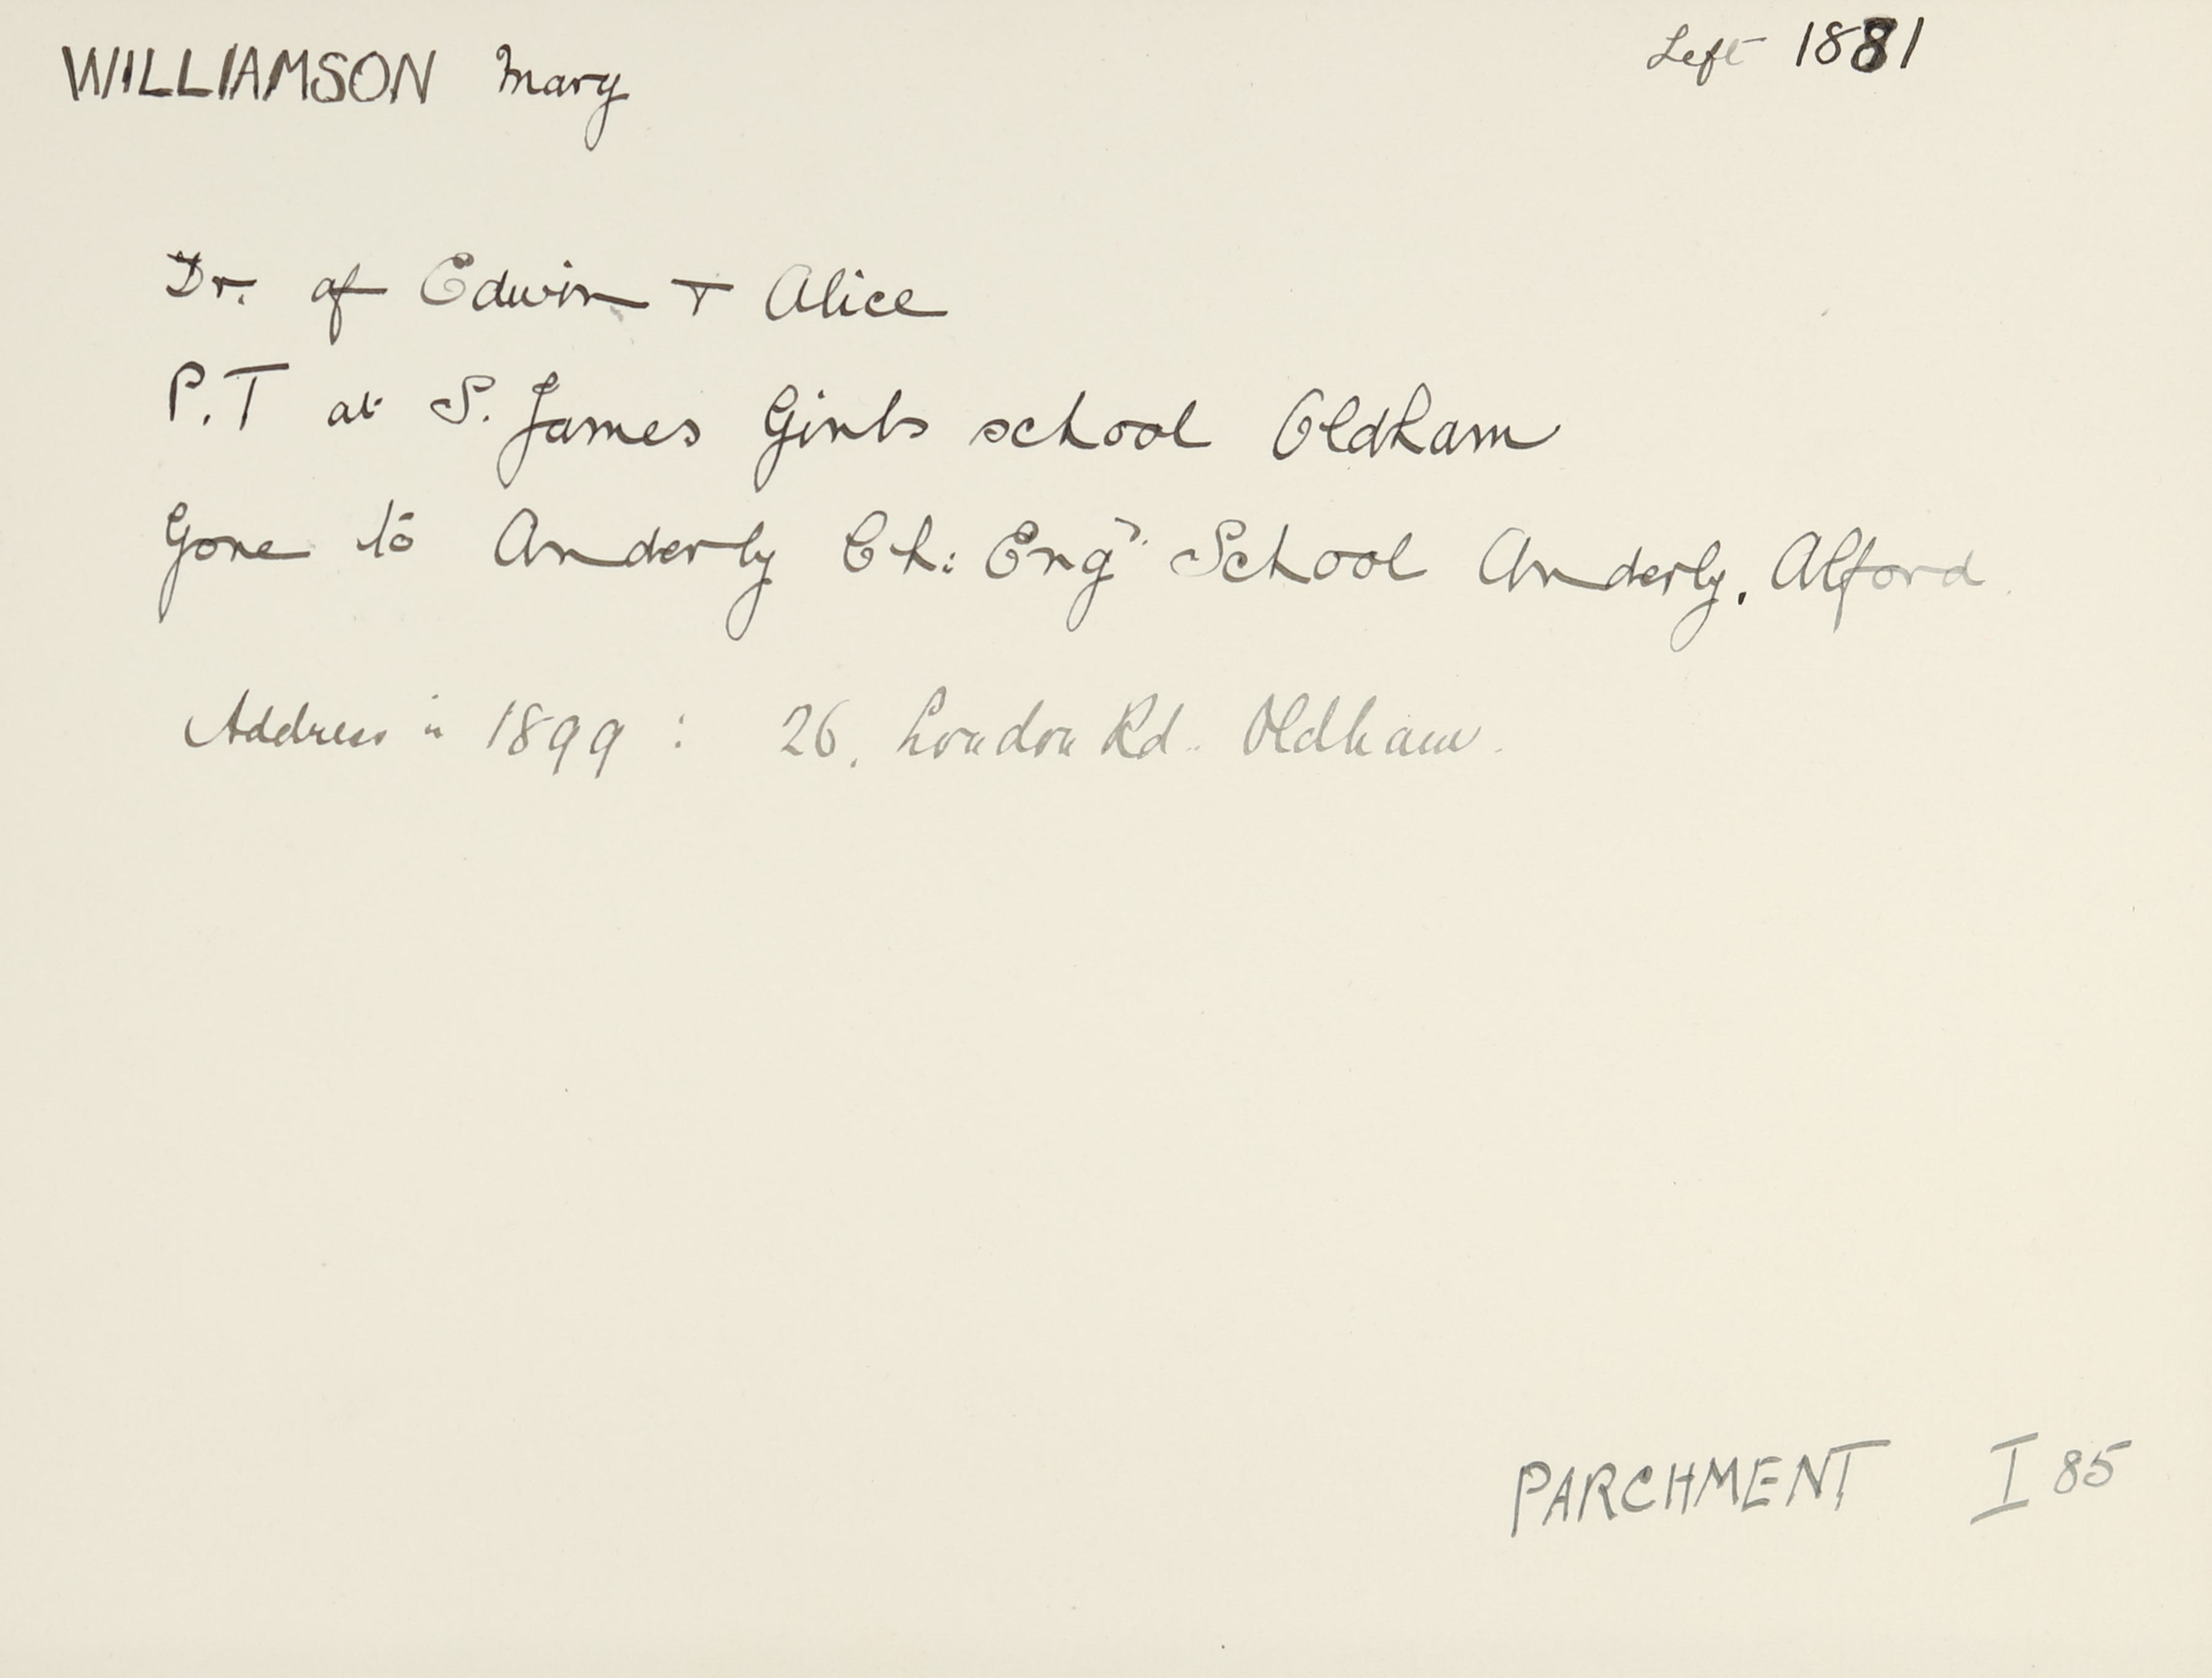 WILLIAMSON Mary
Left 1881
Dr. of Edwin + Alice
P.T at S. James Girls school Oldham
Gone to Anderly Ch: Eng School Anderly, Alford
Address in 1899 : 26, London Rd. Oldham.
PARCHMENT I 85